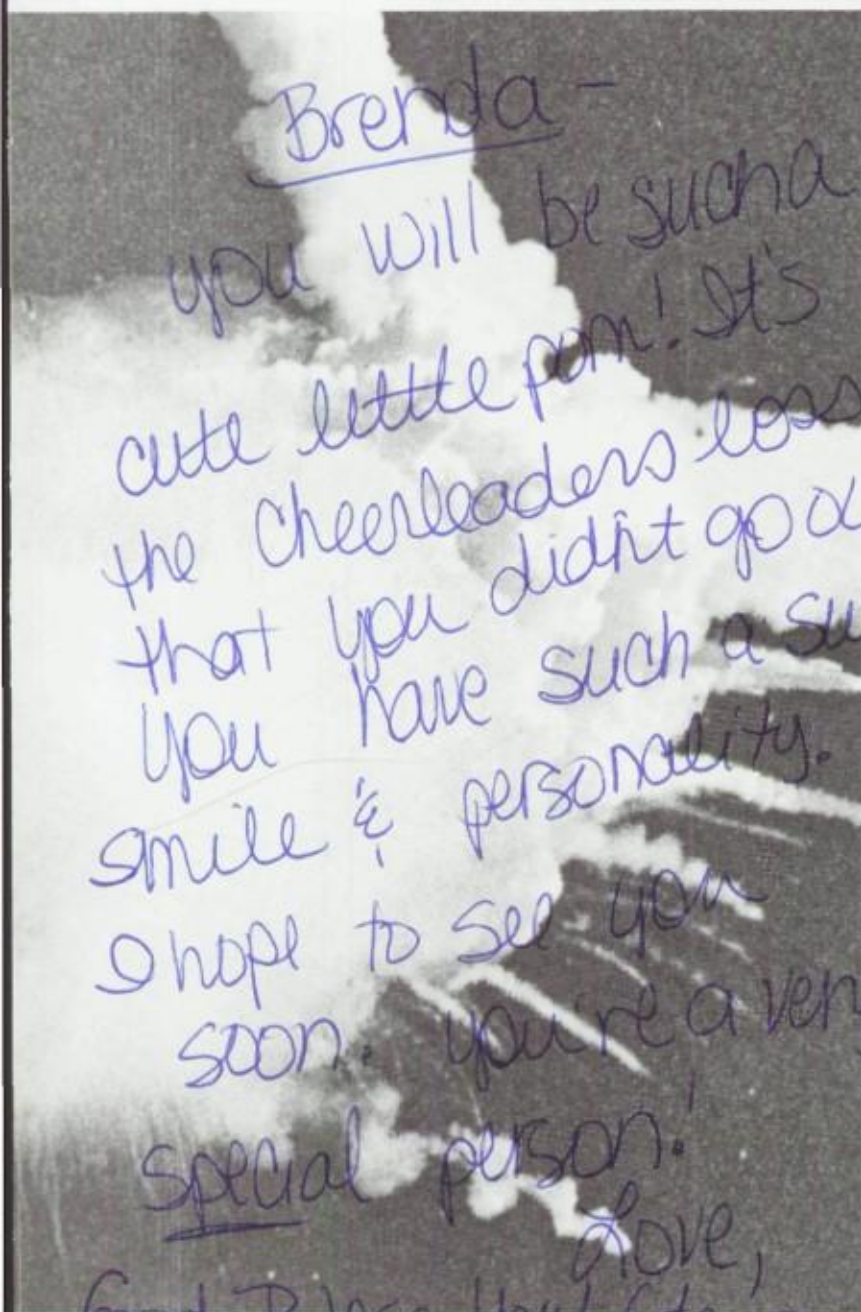 Brenda -
you will be such a
cute little pom! It's
the cheerleaders loss
that you didn't go
You have such a
smile & personality.
I hope to see you
soon. you're a
special person!
Love,